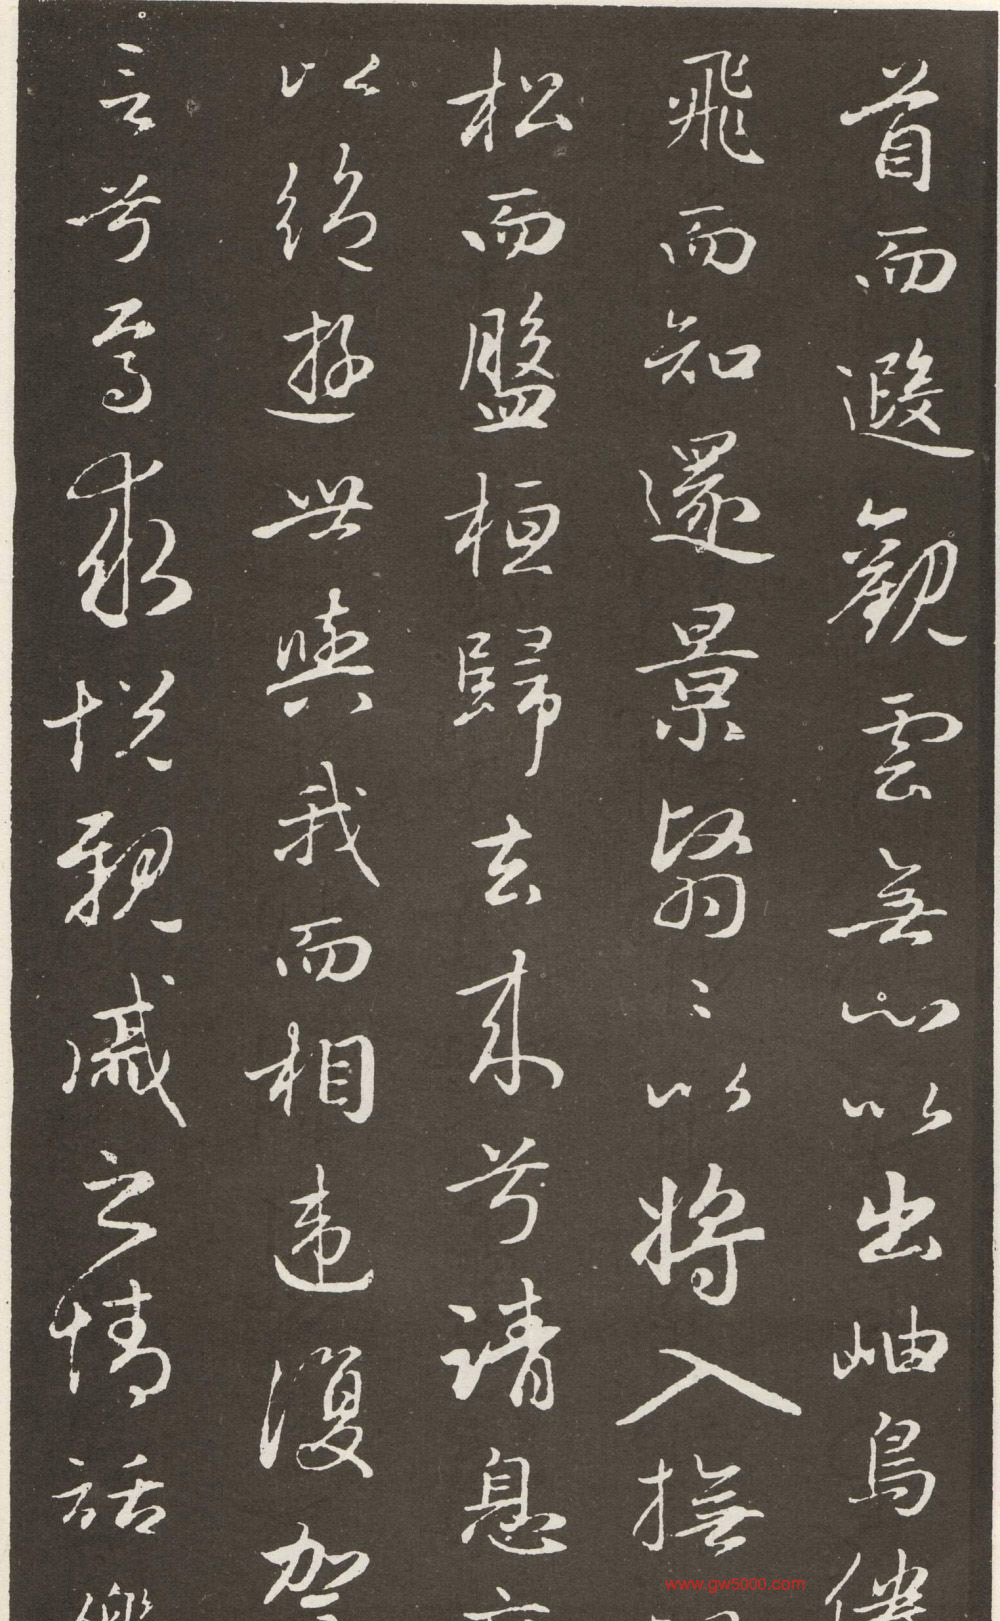 首而遐觀雲無心以出岫鳥倦
飛而知還景翳〻以將入撫
松而盤桓歸去來兮請息
以絕遊世與我而相違復駕
言兮焉求悅親戚之情話樂
www.gw5000.com